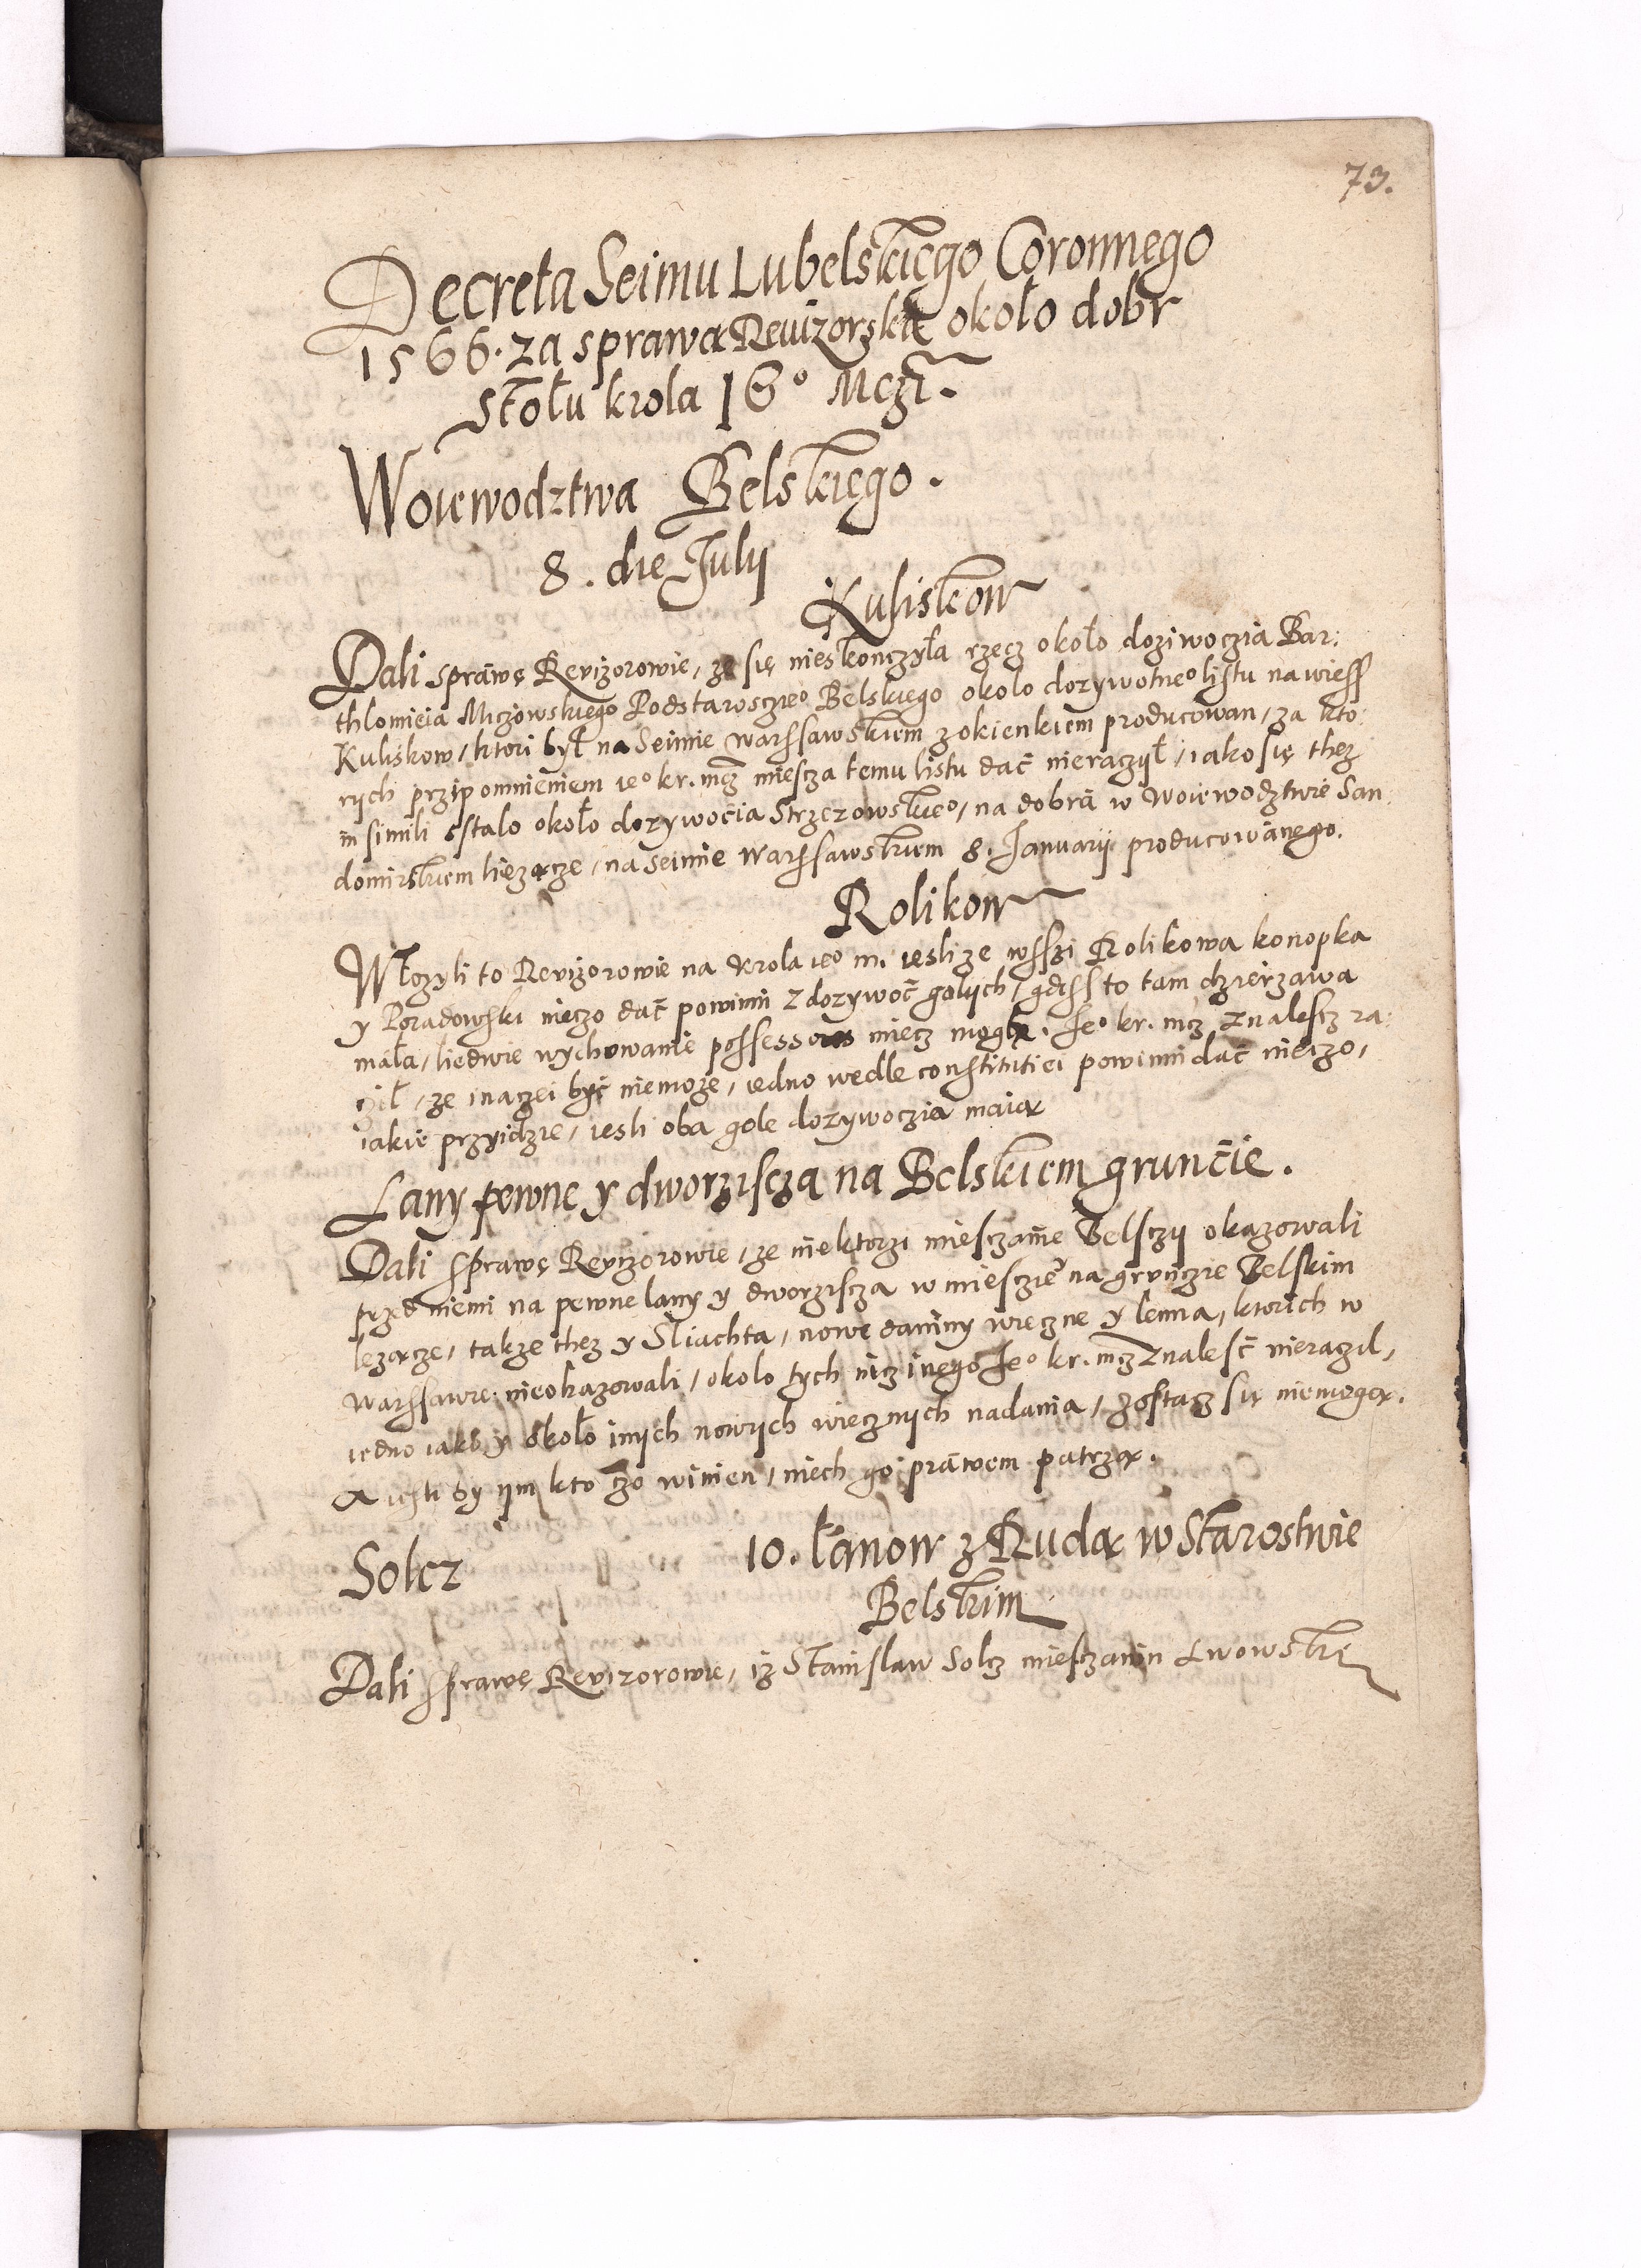 73.
Decreta Seimu Lubelskiego Coronnego
1566. za sprawą Revizorską około dobr
stołu krola IEº Mczi.
Woiewodztwa Belskiego.
8. die Julij
Kuliskow
Dali sprawę Revizorowie, że się nieskonczyła rzecz około doziwoczia Bar:
thlomieia Miczowskiego Podstarosczieº Belskiego okolo dozywotneº listu na wiess
Kuliskow, ktori był na Seimie warssawskiem z okienkiem producowan, za kto:
rych przipomnieniem ieº kr. mcz miescza temu listu dać nieraczył, iako się thez
in simili sstalo około dozywocia Strzezowskieº, na dobra w Woiewodztwie San:
domirskiem liezącze, na Seimie Warssawskiem 8. Januarij producowanego.
Rolikow
Włozyli to Revizorowie na krola ieº m. iesli ze wsszi Rolikowa konopka
y Poradowski nieczo dać powinni z dozywoć golych, gdyss to tam dzierzawa
mała, liedwie wychowanie possessores miecz mogą. Jeº kr. mcz znalescz ra:
cził, ze inaczei być niemoze, iedno wedle constitutiei powinni dać nieczo,
iakie przyidzie, iesli oba gole dozywoczia maią
Lany pewne y dworziscza na Belskiem gruncie.
Dali sprawę Revizorowie, ze niektorzi miesczanie Belsczy okazowali
przed niemi na pewne lany y dworziscza w miesczie na grunczie Belskim
lezącze, takze thez y Sliachta, nowe daniny wieczne y lenna, ktorich w
warssawie nieokazowali, okolo tych nicz inego Jeº kr. mcz znaleść nieraczil,
iedno iako y około inych nowych wiecznych nadania, zostacz się niemogą.
A iesli by ym kto czo winien, niech go prawem patrzą.
Solcz 10. łanow z Rudą w Starostwie
Belskim
Dali sprawę Revizorowie, iz Stanislaw Solcz miesczanin Lwowski